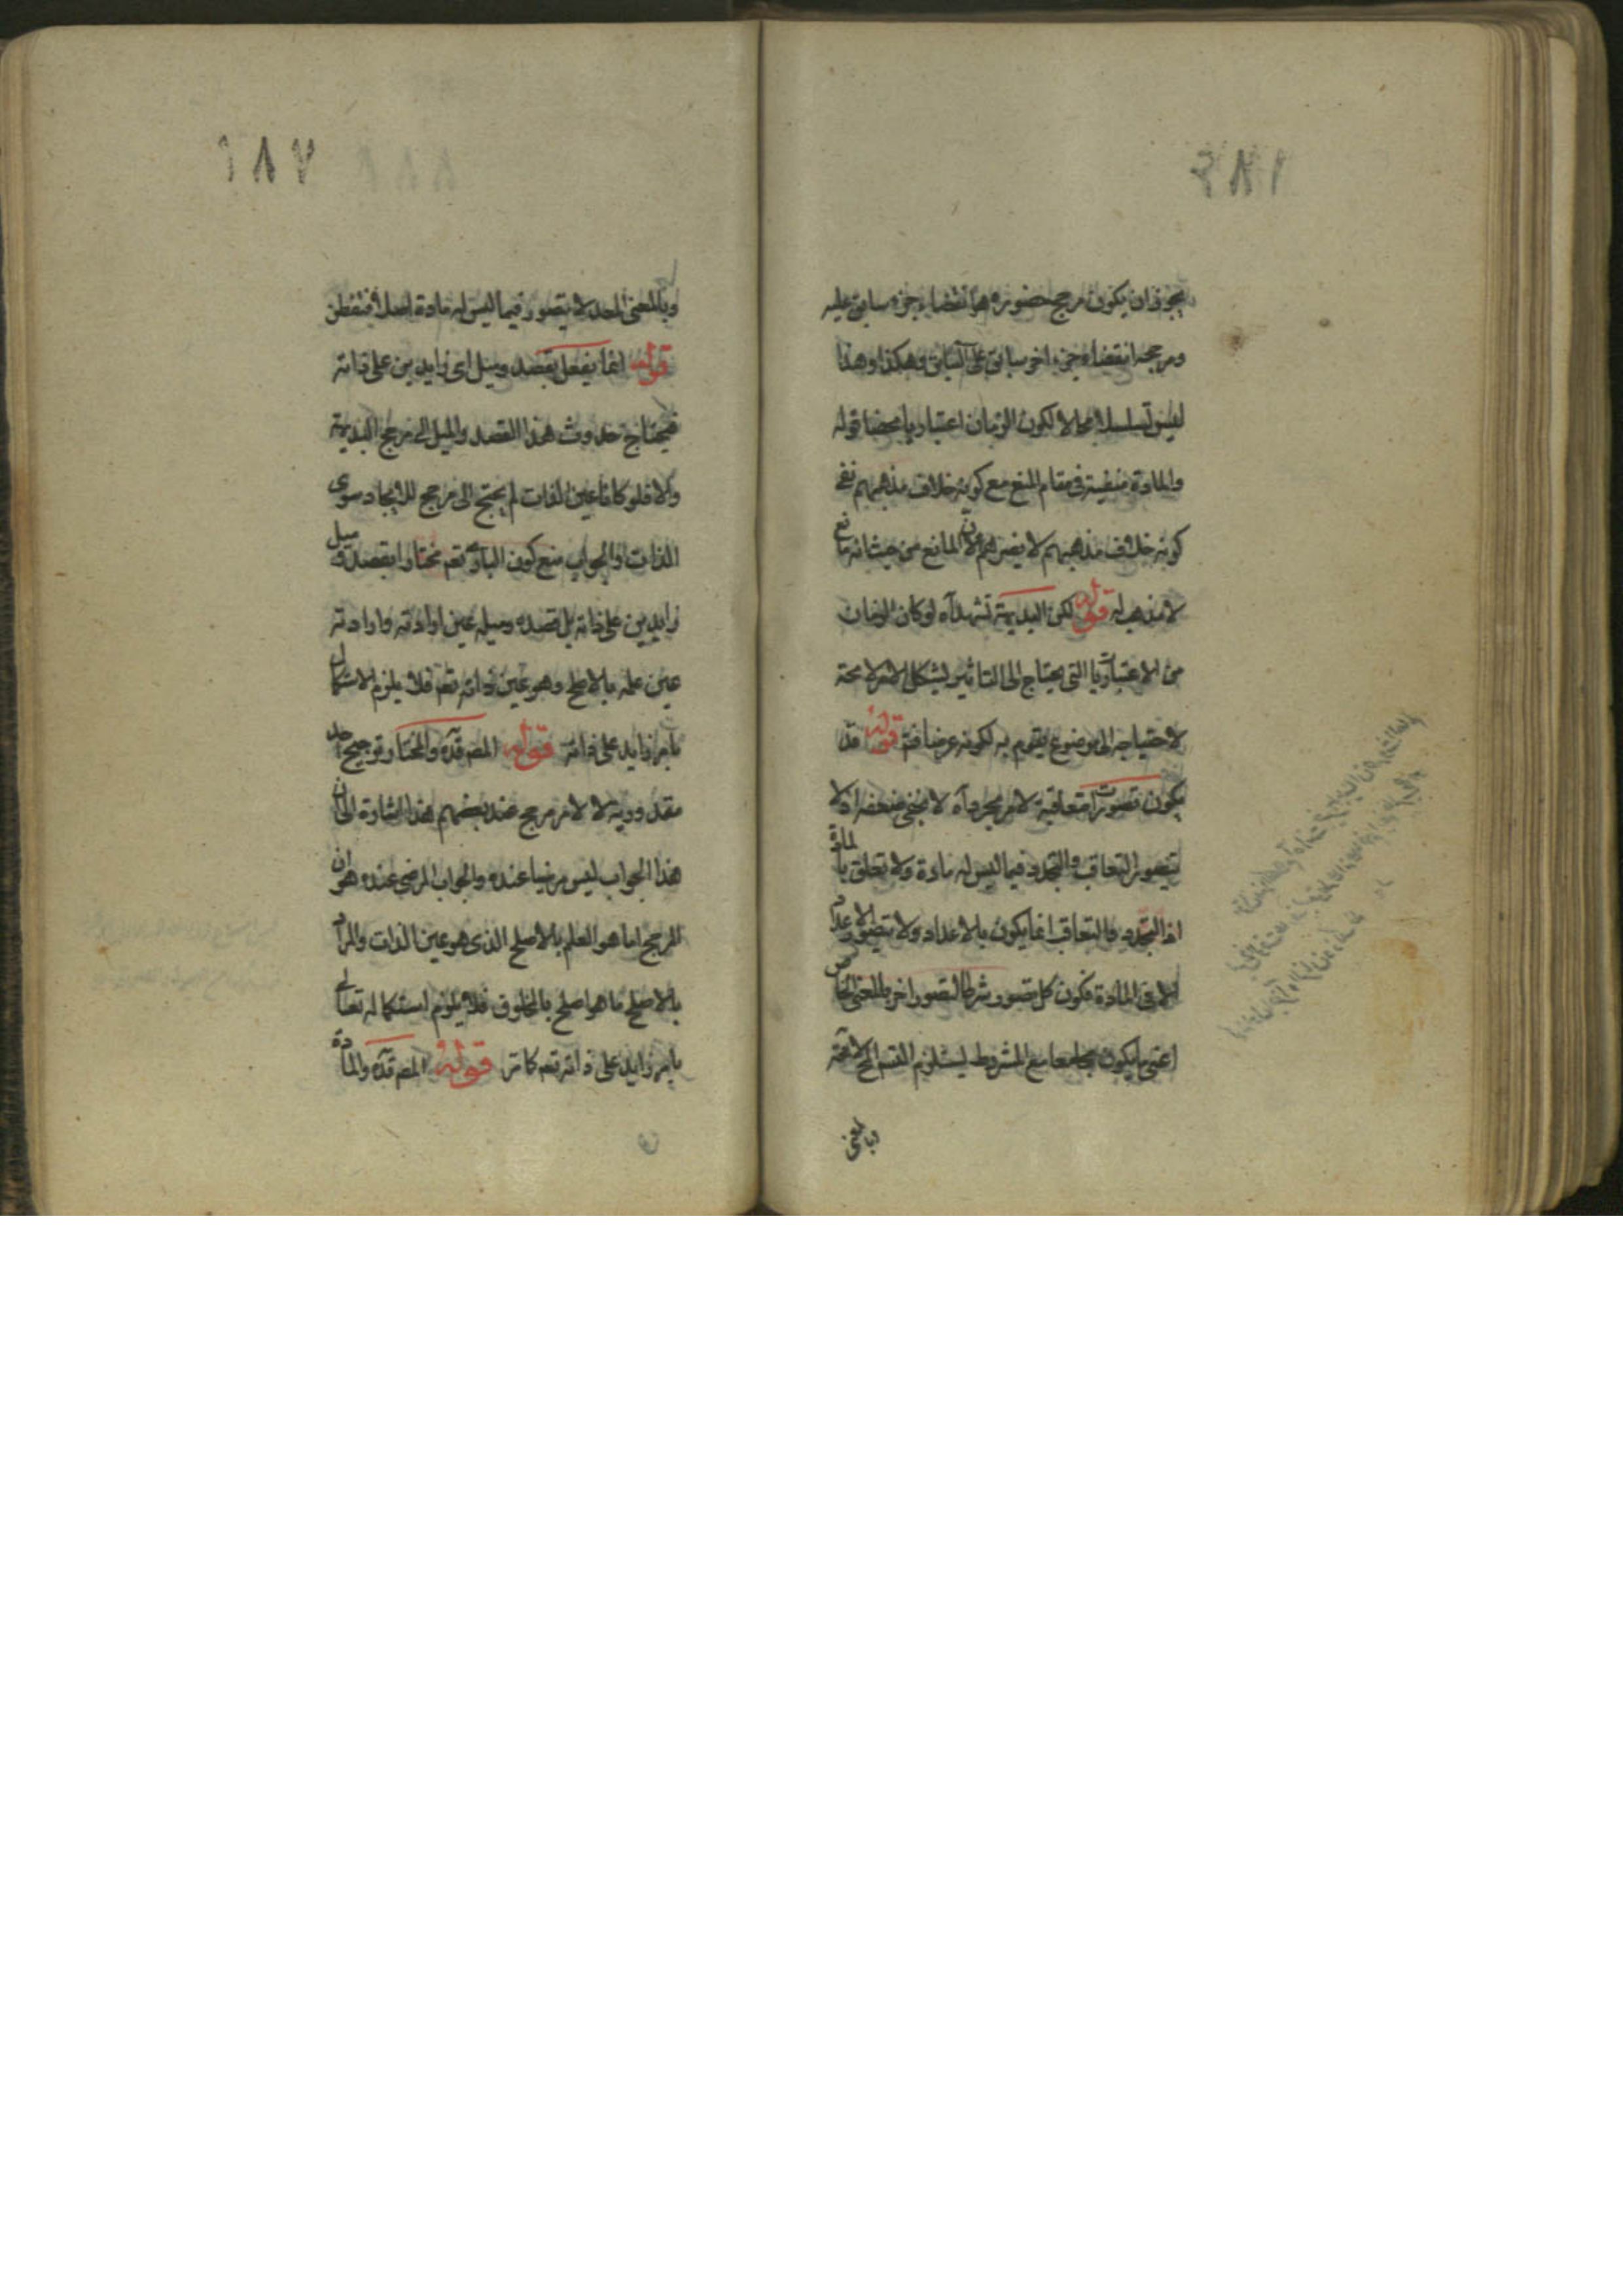 يجوز ان يكون مرجح حضوره هو انقضاء جزء سابق عليه
ومرجحه انقضاء جزء اخر سابق على السابق وهكذا وهذا
ليس تسلسلا محالا لكون الزمان اعتباريا محضا قوله
والمادة منفية في مقام المنع مع كونه خلاف مذهبهم نفي
كونه خلاف مذهبهم لا يضرهم لان المانع من حيث انه مانع
لا مذهب له قوله لكن البديهة تشهد آه لو كان الزمان
من الاعتباريات التي يحتاج الى التاثير ليشكل الامر لا محة
لاحتياجه الى موضوع يقوم به لكونه عرضا فتم قوله قد
يكون تصورات متعاقبة لامر مجرد آه لا يخفى ضعفه اذ لا
يتصور التعاقب والتجدد فيما ليس له مادة ولا تعلق بالمادة
اذ التجدد والتعاقب انما يكون بالاعداد ولا تصور الاعداد
الا في المادة فكون كل تصور شرطا لتصور اخر بالمعنى الخاص
اعني ما يكون مجامعا مع المشروط يستلزم القسم المح لا محة
وبالمعنى
١٨٧
وبالمعنى المعد لا يتصور فيما ليس له مادة اصلا فتفطن
قوله انما يفعل بقصد وميل اى زايدين على ذاته
فيحتاج حدوث هذا القصد والميل الى مرجح البديهة
والا فلو كانا عين الذات لم يحتج الى مرجح للايجاد سوى
الذات والجواب منع كون البارى تعم مختارا بقصد وميل
زايدين على ذاته بل قصده وميله عين ارادته وارادته
عين علمه بالاصلح وهو عين ذاته تعم فلا يلزم الاستكمال
بامر زايد على ذاته قوله المص قده والمختار ترجيح احد
مقدوريه لا لامر مرجح عند بعضهم هذا اشارة الى ان
هذا الجواب ليس مرضيا عنده والجواب المرضي عنده هو ان
المرجح اما هو العلم بالاصلح الذى هو عين الذات والمراد
بالاصلح ما هو اصلح بالمخلوق فلا يلزم استكماله تعالى
بامر زايد على ذاته تعم كما مر قوله المص قده والمادة